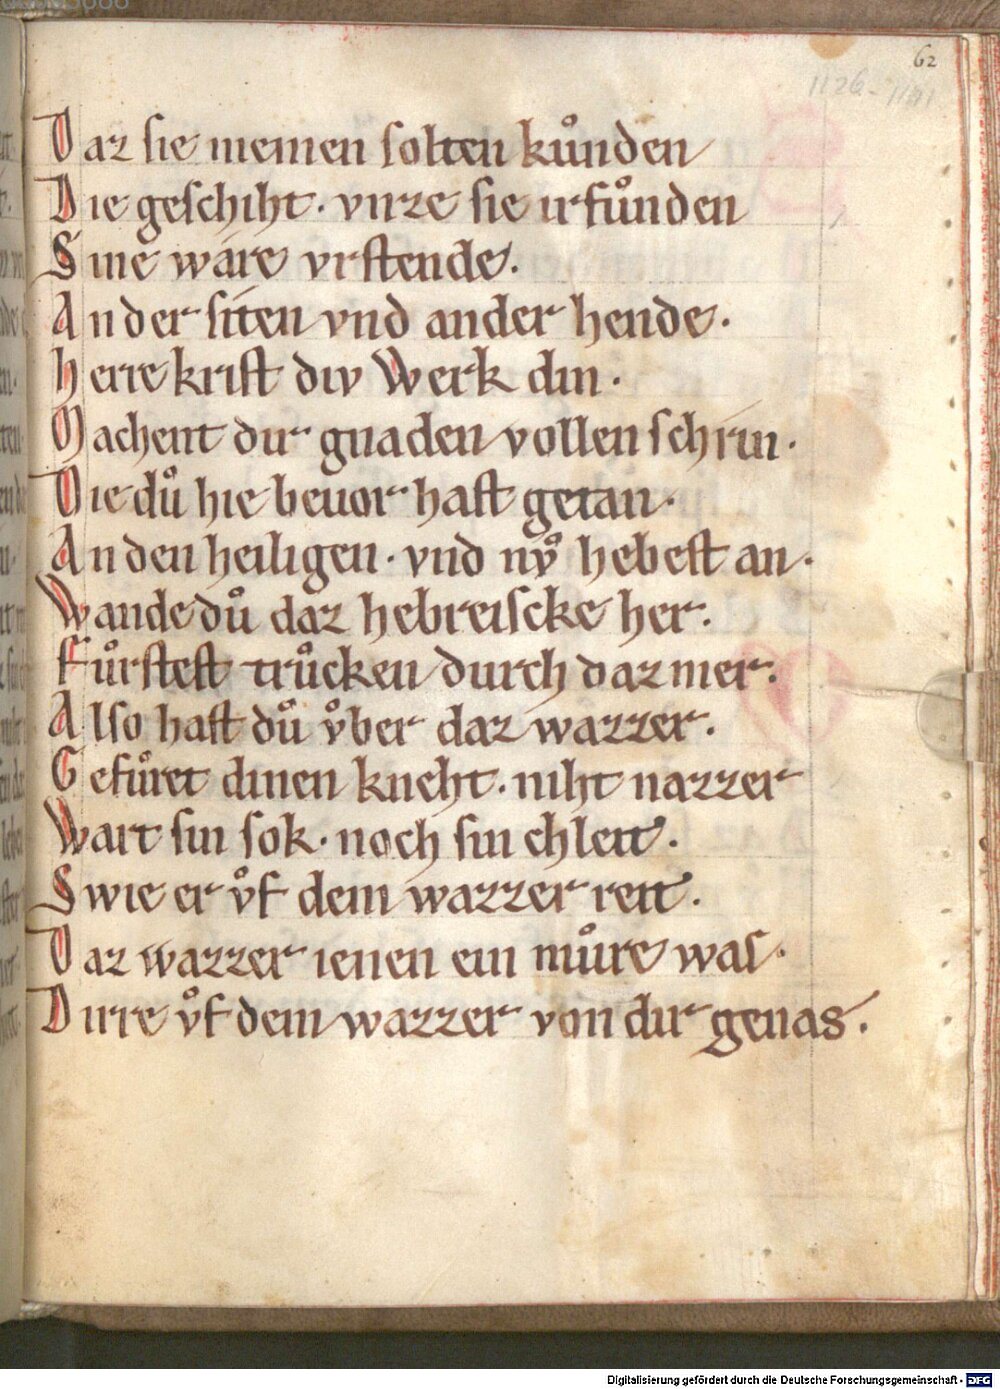 62
1126-1141
Daz sie niemen solten kůnden
Die geschiht · vnze sie irfůnden
Sine ware vrstende.
An der siten vnd ander hende.
Herre krist div Werk din ·
Machent dir gnaden vollen schrin ·
Die dů hie beuor hast getan ·
An den heiligen · vnd nv̊ hebest an ·
Wande dů daz hebreiscke her.
Fůrstest trůcken durch daz mer.
Also hast dů v̊ber daz wazzer.
Gefůret dinen kneht · niht nazzer
Wart sin sok · noch sin chleit.
Swie er v̊f dem wazzer reit.
Daz wazzer ienen ein můre was ·
Dirre v̊f dem wazzer von dir genas.
Digitalisierung gefördert durch die Deutsche Forschungsgemeinschaft - DFG